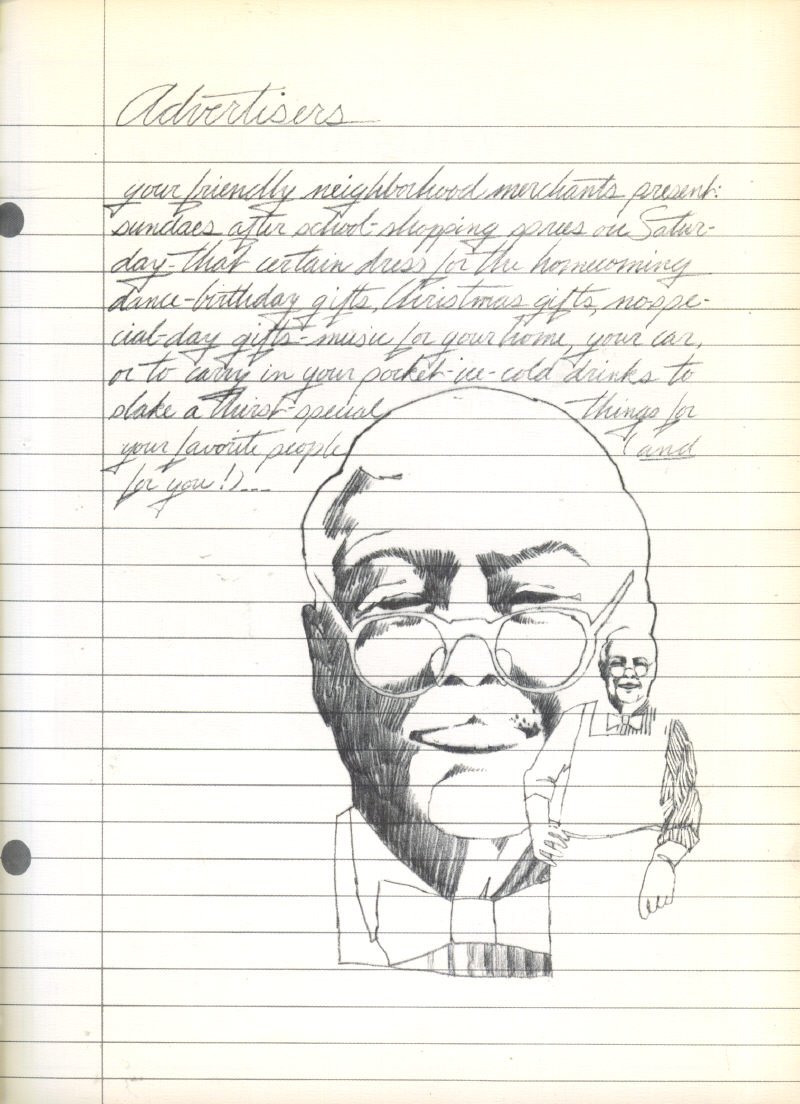 Advertisers
your friendly neighborhood merchants present:
sundaes after school-shopping sprees on Satur-
day-that certain dress for the homecoming
dance-birthday gifts, Christmas gifts, no-spe-
cial-day gifts-music for your home, your car,
or to carry in your pocket-ice-cold drinks to
slake a thirst-special things for
your favorite people (and
for you!)...